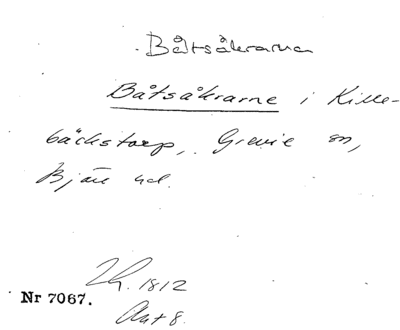 Båtsåkrarna
Båtsåkrarne i Kille-
bäckstorp, Grevie sn,
Bjäre hd.
Lh. 1812
Nr 7067.
Akt 8.